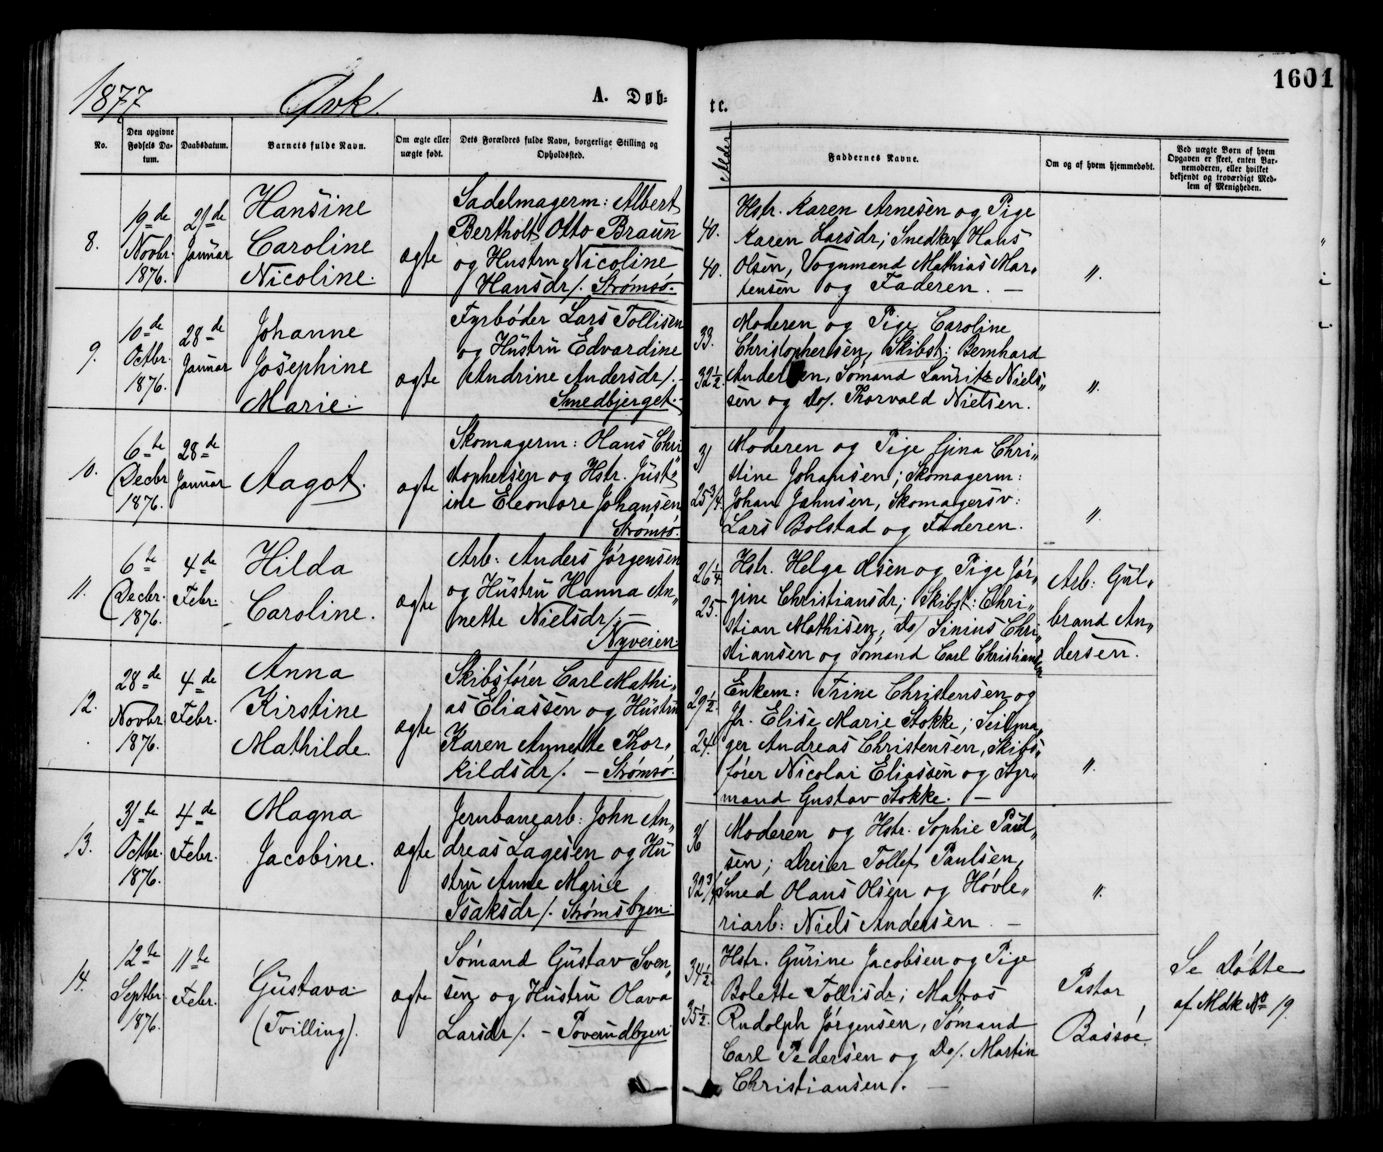 1877 Qvk. A. Døb-
No.
Den opgivne Fødsels Da-
tum.
Daabsdatum.
Barnets fulde Navn.
Om ægte eller
uægte født.
Dets Forældres fulde Navn, borgerlige Stilling og
Opholdssted.
8.
19de
Novbr.
1876.
21de
Januar
Hansine
Caroline
Nicoline.
ægte
Sadelmagerm: Albert
Berthold Otto Braun
og Hustru Nicoline
Hansdr/. Strømsø.
9.
10de
Octbr.
1876.
28de
Januar
Johanne
Josephine
Marie.
ægte
Fyrbøder Lars Tollisen
og Hustru Edvardine
Andrine Andersdr/. –
Smedbjerget.
10.
6te
Decbr
1876.
28de
Januar
Aagot.
ægte
Skomagerm: Hans Chri
stophersen og Hstr. Just
ine Eleonore Johansen
Strømsø.
11.
6te
Decbr.
1876.
4de
Febr.
Hilda
Caroline.
ægte
Arb. Anders Jørgensen
og Hustru Hanna An„
nette Nielsdr/. –
Nyveien.
12.
28de
Novbr.
1876.
4de
Febr.
Anna
Kirstine
Mathilde.
ægte
Skibsfører Carl Mathi„
as Eliassen og Hustru
Karen Annette Thor„
kildsdr/. – Strømsø.
13.
31te
Octbr.
1876.
4de
Febr.
Magna
Jacobine.
ægte
Jernbanearb: John An„
dreas Lagesen og Hu
stru Anne Marie
Isaksdr/. Strømsbyen.
14.
12te
Septbr.
1876.
11te
Febr.
Gustava
(Tvilling).
ægte
Sømand Gustav Sven„
sen og Hustru Olava
Larsdr/. – Toverudbyen
1601
te.
Alder
Faddernes Navne.
Om og af hvem hjemmedøbt.
Ved uægte Børn af hvem
Opgaven er skeet, enten Bar-
nemoderen, eller hvilket
bekjendt og troværdigt Med-
lem af Menigheden.
40.
40.
Hstr. Karen Arnesen og Pige
Karen Larsdr; Snedker Hans
Olsen, Vognmand Mathias Mar„
tensen og Faderen. –
„.
33.
32½
Moderen og Pige Caroline
Christophersen, Skibst: Bernhard
Andersen, Sømand Lauritz Niels„
sen og Do/. Thorvald Nielsen.
„.
31
25¾
Moderen og Pige Gina Chri„
stine Johansen; Skomagerm:
Johan Jahnsen, Skomagersv:
Lars Bolstad og Faderen.
„.
26¼
25.
Hstr. Helga Olsen og Pige Jør„
gine Christiansdr; Skibst: Chri„
stian Mathisen, Do/ Sinius Chri„
stiansen og Sømand Carl Christiansen
Arb: Gul„
brand An„
dersen.
29½
24.
Enkem: Trine Christensen og
Jfr. Elise Marie Stokke; Seilma„
ger Andreas Christensen, Skibs„
fører Nicolai Eliassen og Styr„
mand Gustav Stokke. –
„.
36
32¾
Moderen og Hstr. Sophie Paul„
sen; Dreier Tollef Paulsen,
Smed Hans Olsen og Høvle„
riarb: Niels Andersen –
„.
34½
35½.
Hstr. Gurine Jacobsen og Pige
Bolette Tollisdr; Matros
Rudolph Jørgensen, Sømand
Carl Pedersen og Do/. Martin
Christiansen/. –
Pastor
Bassøe.
Se Døbte
af Mdk No 19.